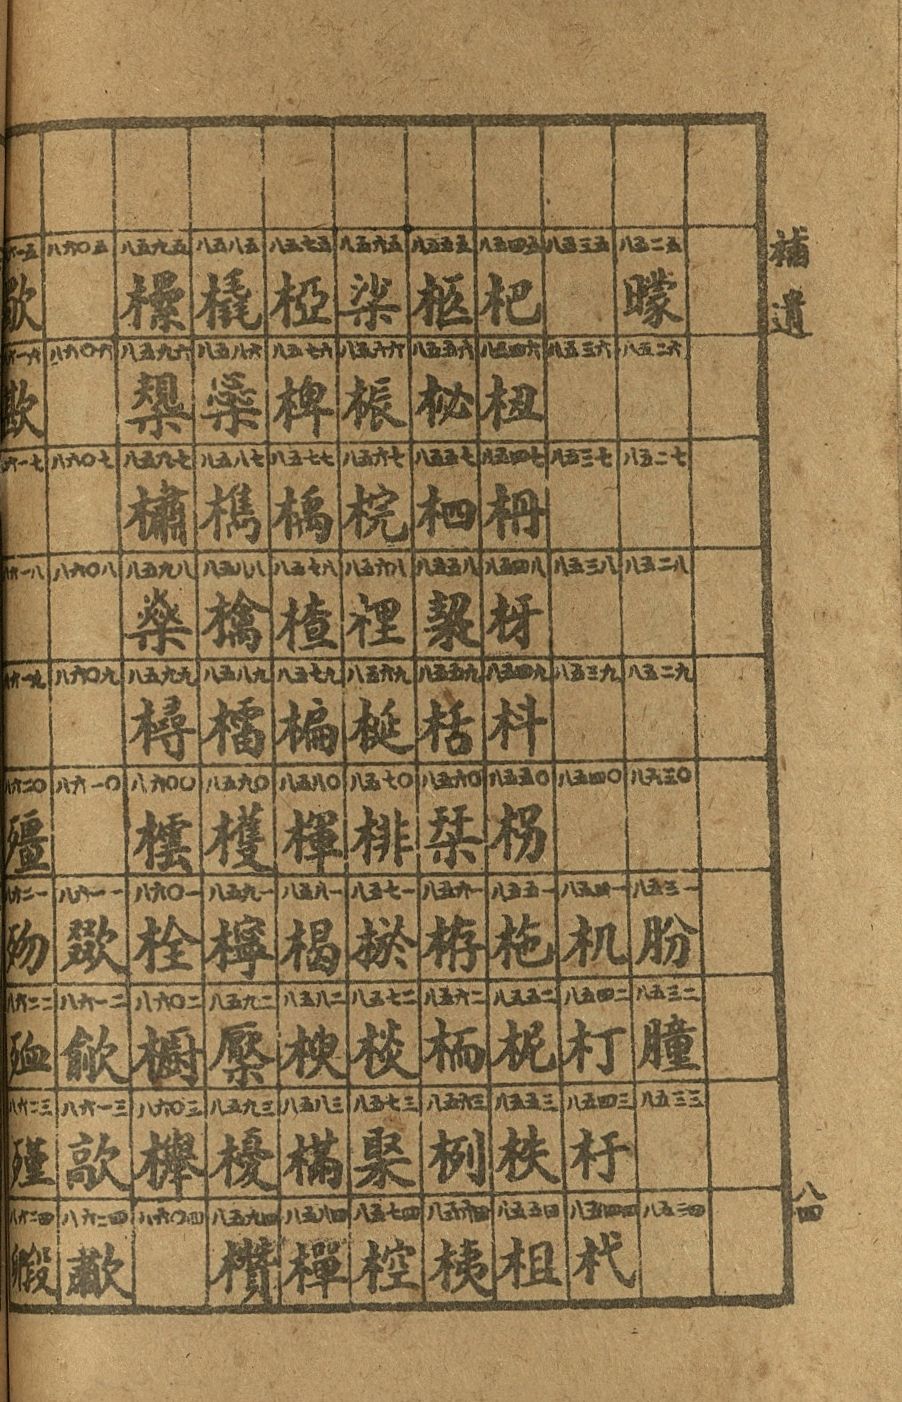 補遺
八四
八五二五 曚
八五二六
八五二七
八五二八
八五二九
八五三〇
八五三一 肦
八五三二 朣
八五三三
八五三四
八五三五
八五三六
八五三七
八五三八
八五三九
八五四〇
八五四一 机
八五四二 朾
八五四三 杅
八五四四 杙
八五四五 杷
八五四六 杻
八五四七 枏
八五四八 枒
八五四九 枓
八五五〇 枴
八五五一 柂
八五五二 柅
八五五三 柣
八五五四 柤
八五五五 柩
八五五六 柲
八五五七 柶
八五五八 栔
八五五九 栝
八五六〇 栞
八五六一 栫
八五六二 栭
八五六三 栵
八五六四 桋
八五六五 桬
八五六六 桭
八五六七 梡
八五六八 梩
八五六九 梴
八五七〇 棑
八五七一 棜
八五七二 棪
八五七三 棸
八五七四 椌
八五七五 椏
八五七六 椑
八五七七 楀
八五七八 楂
八五七九 楄
八五八〇 楎
八五八一 楬
八五八二 楰
八五八三 樠
八五八四 樿
八五八五 橇
八五八六 橤
八五八七 檇
八五八八 檎
八五八九 檑
八五九〇 檴
八五九一 檸
八五九二 檿
八五九三 櫌
八五九四 欑
八五九五 樏
八五九六 槼
八五九七 橚
八五九八 燊
八五九九 樳
八六〇〇 橒
八六〇一 栓
八六〇二 櫥
八六〇三 櫸
八六〇四
八六〇五
八六〇六
八六〇七
八六〇八
八六〇九
八六一〇
八六一一
八六一二 歈
八六一三 歊
八六一四 歗
八六二〇 殭
八六二一 歾
八六二二 殈
八六二三 殣
八六二四 毈